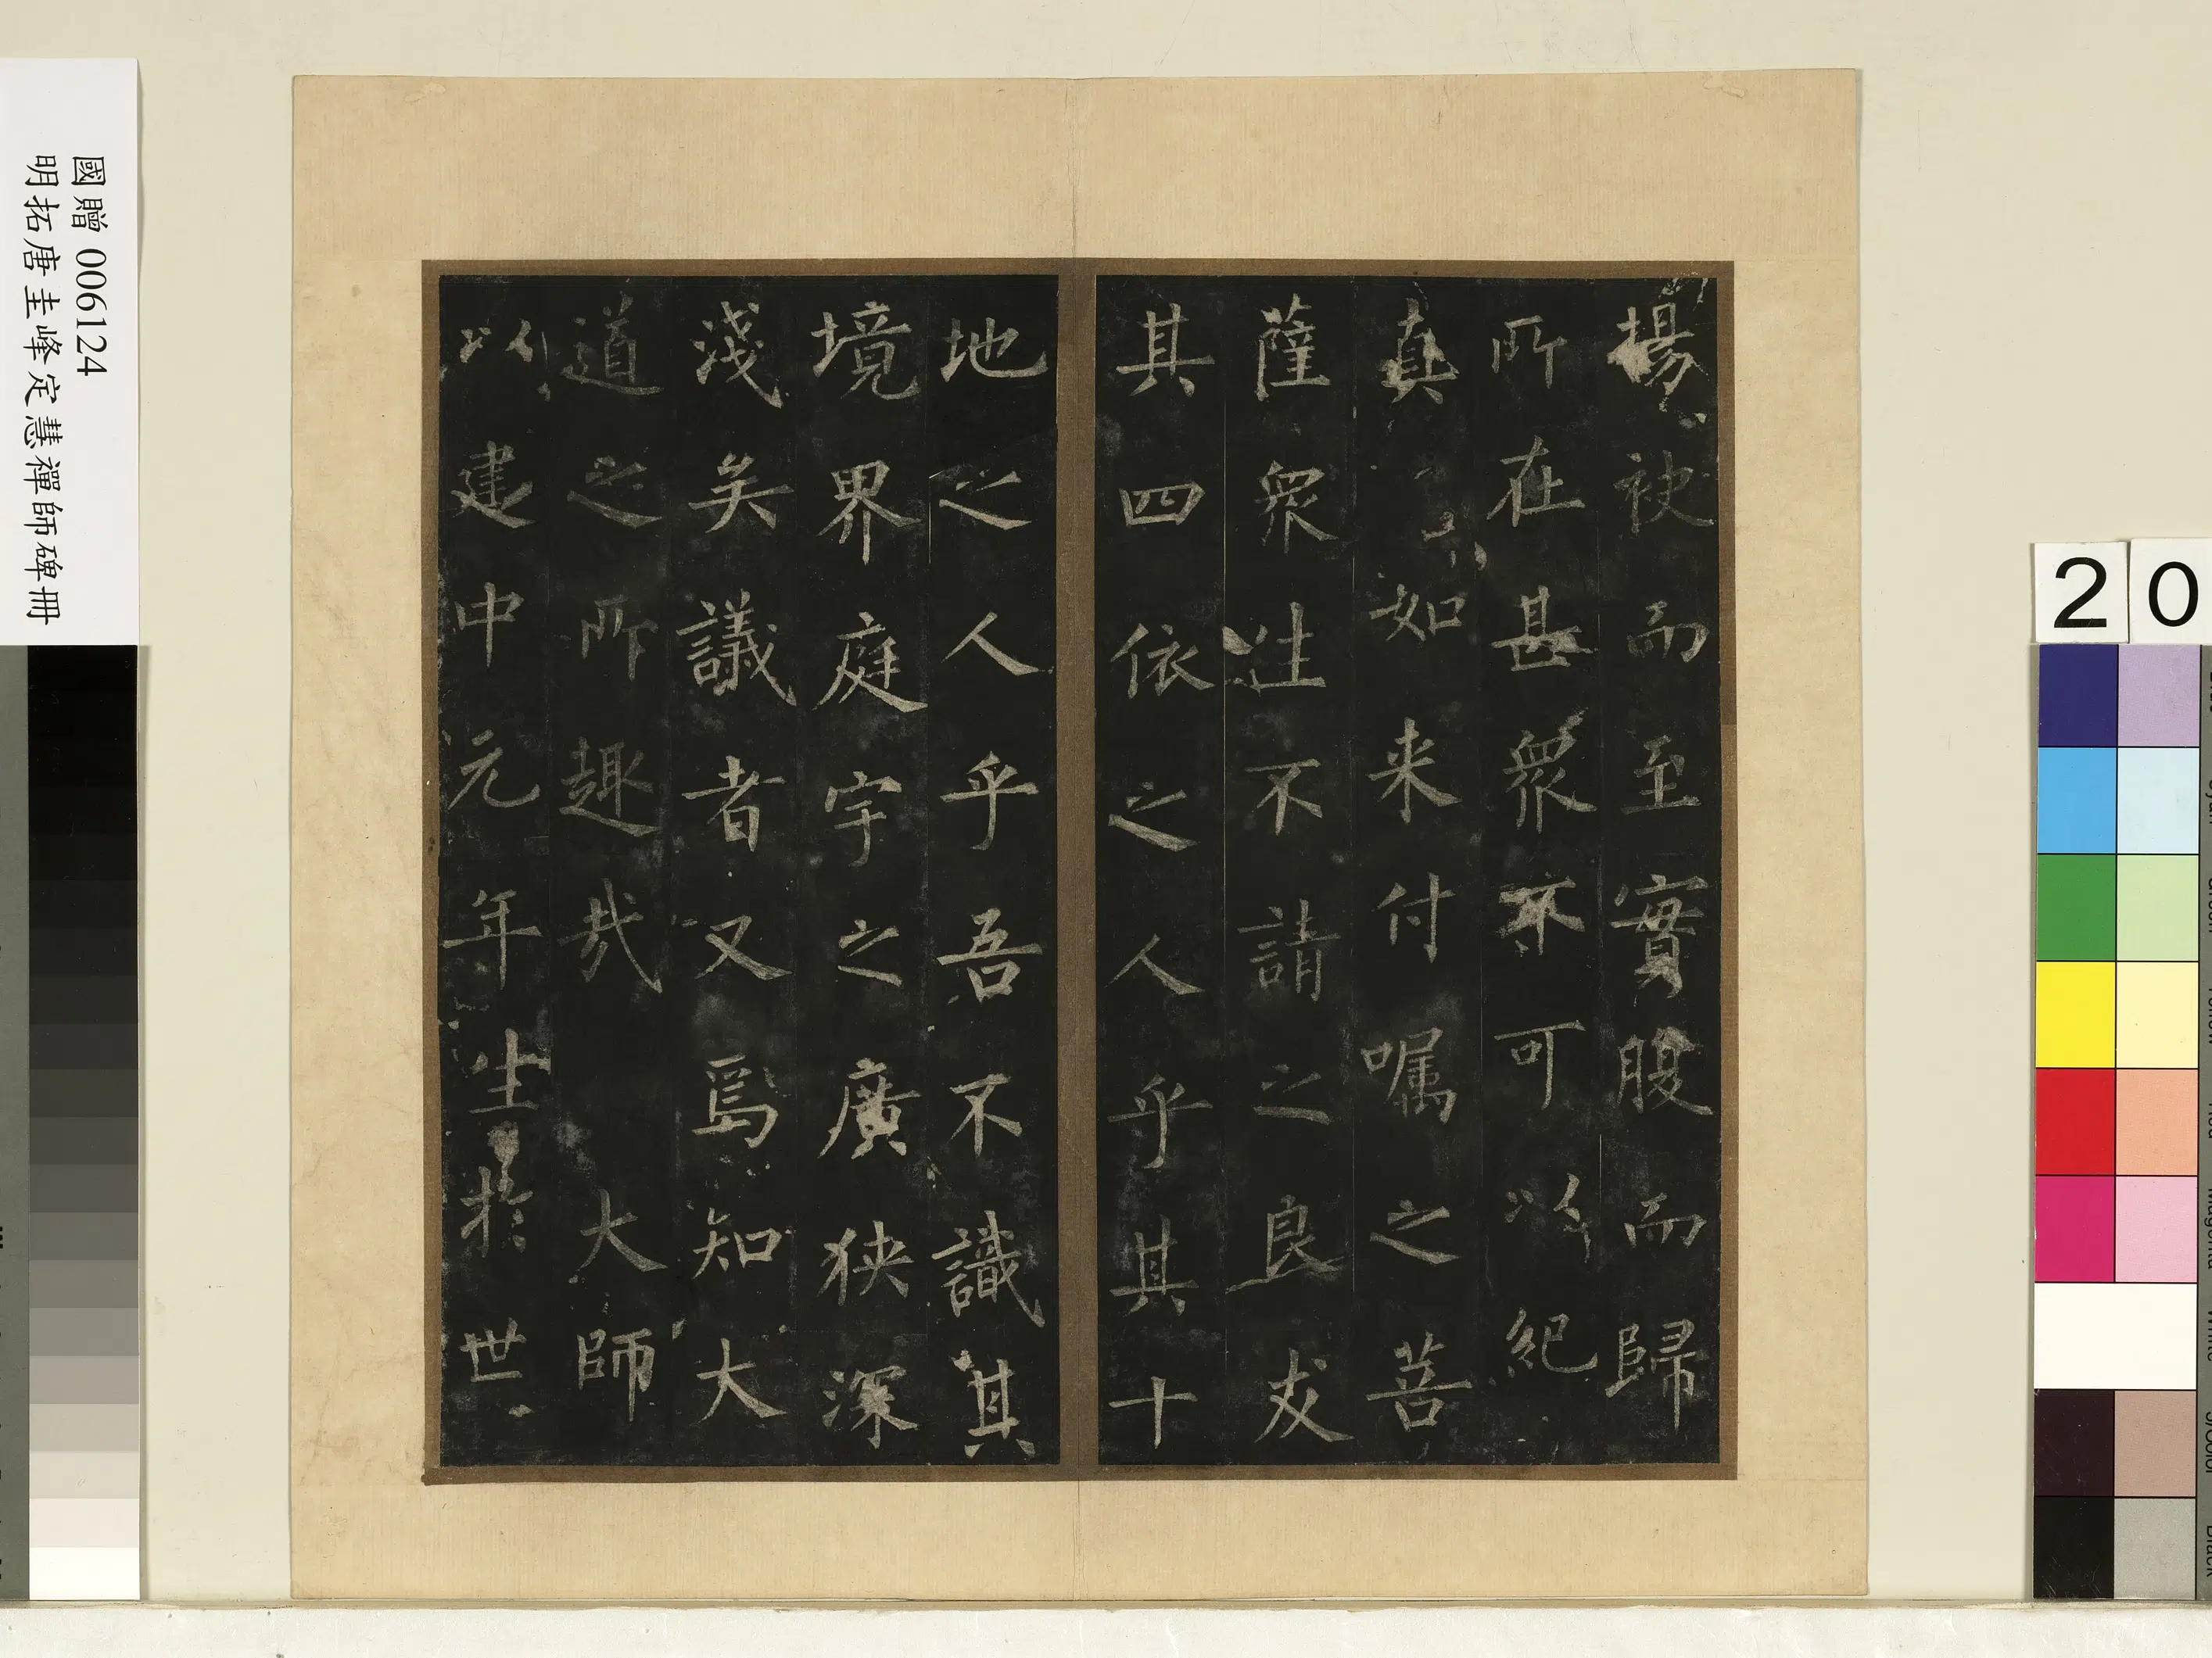 國贈 006124
明拓唐圭峰定慧禪師碑冊
20
揚袂而至實腹而歸
所在甚衆不可以紀
真如来付嘱之菩
薩衆生不請之良友
其四依之人乎其十
地之人乎吾不識其
境界庭宇之廣狹深
淺矣議者又焉知大
道之所趣哉 大師
以建中元年生於世